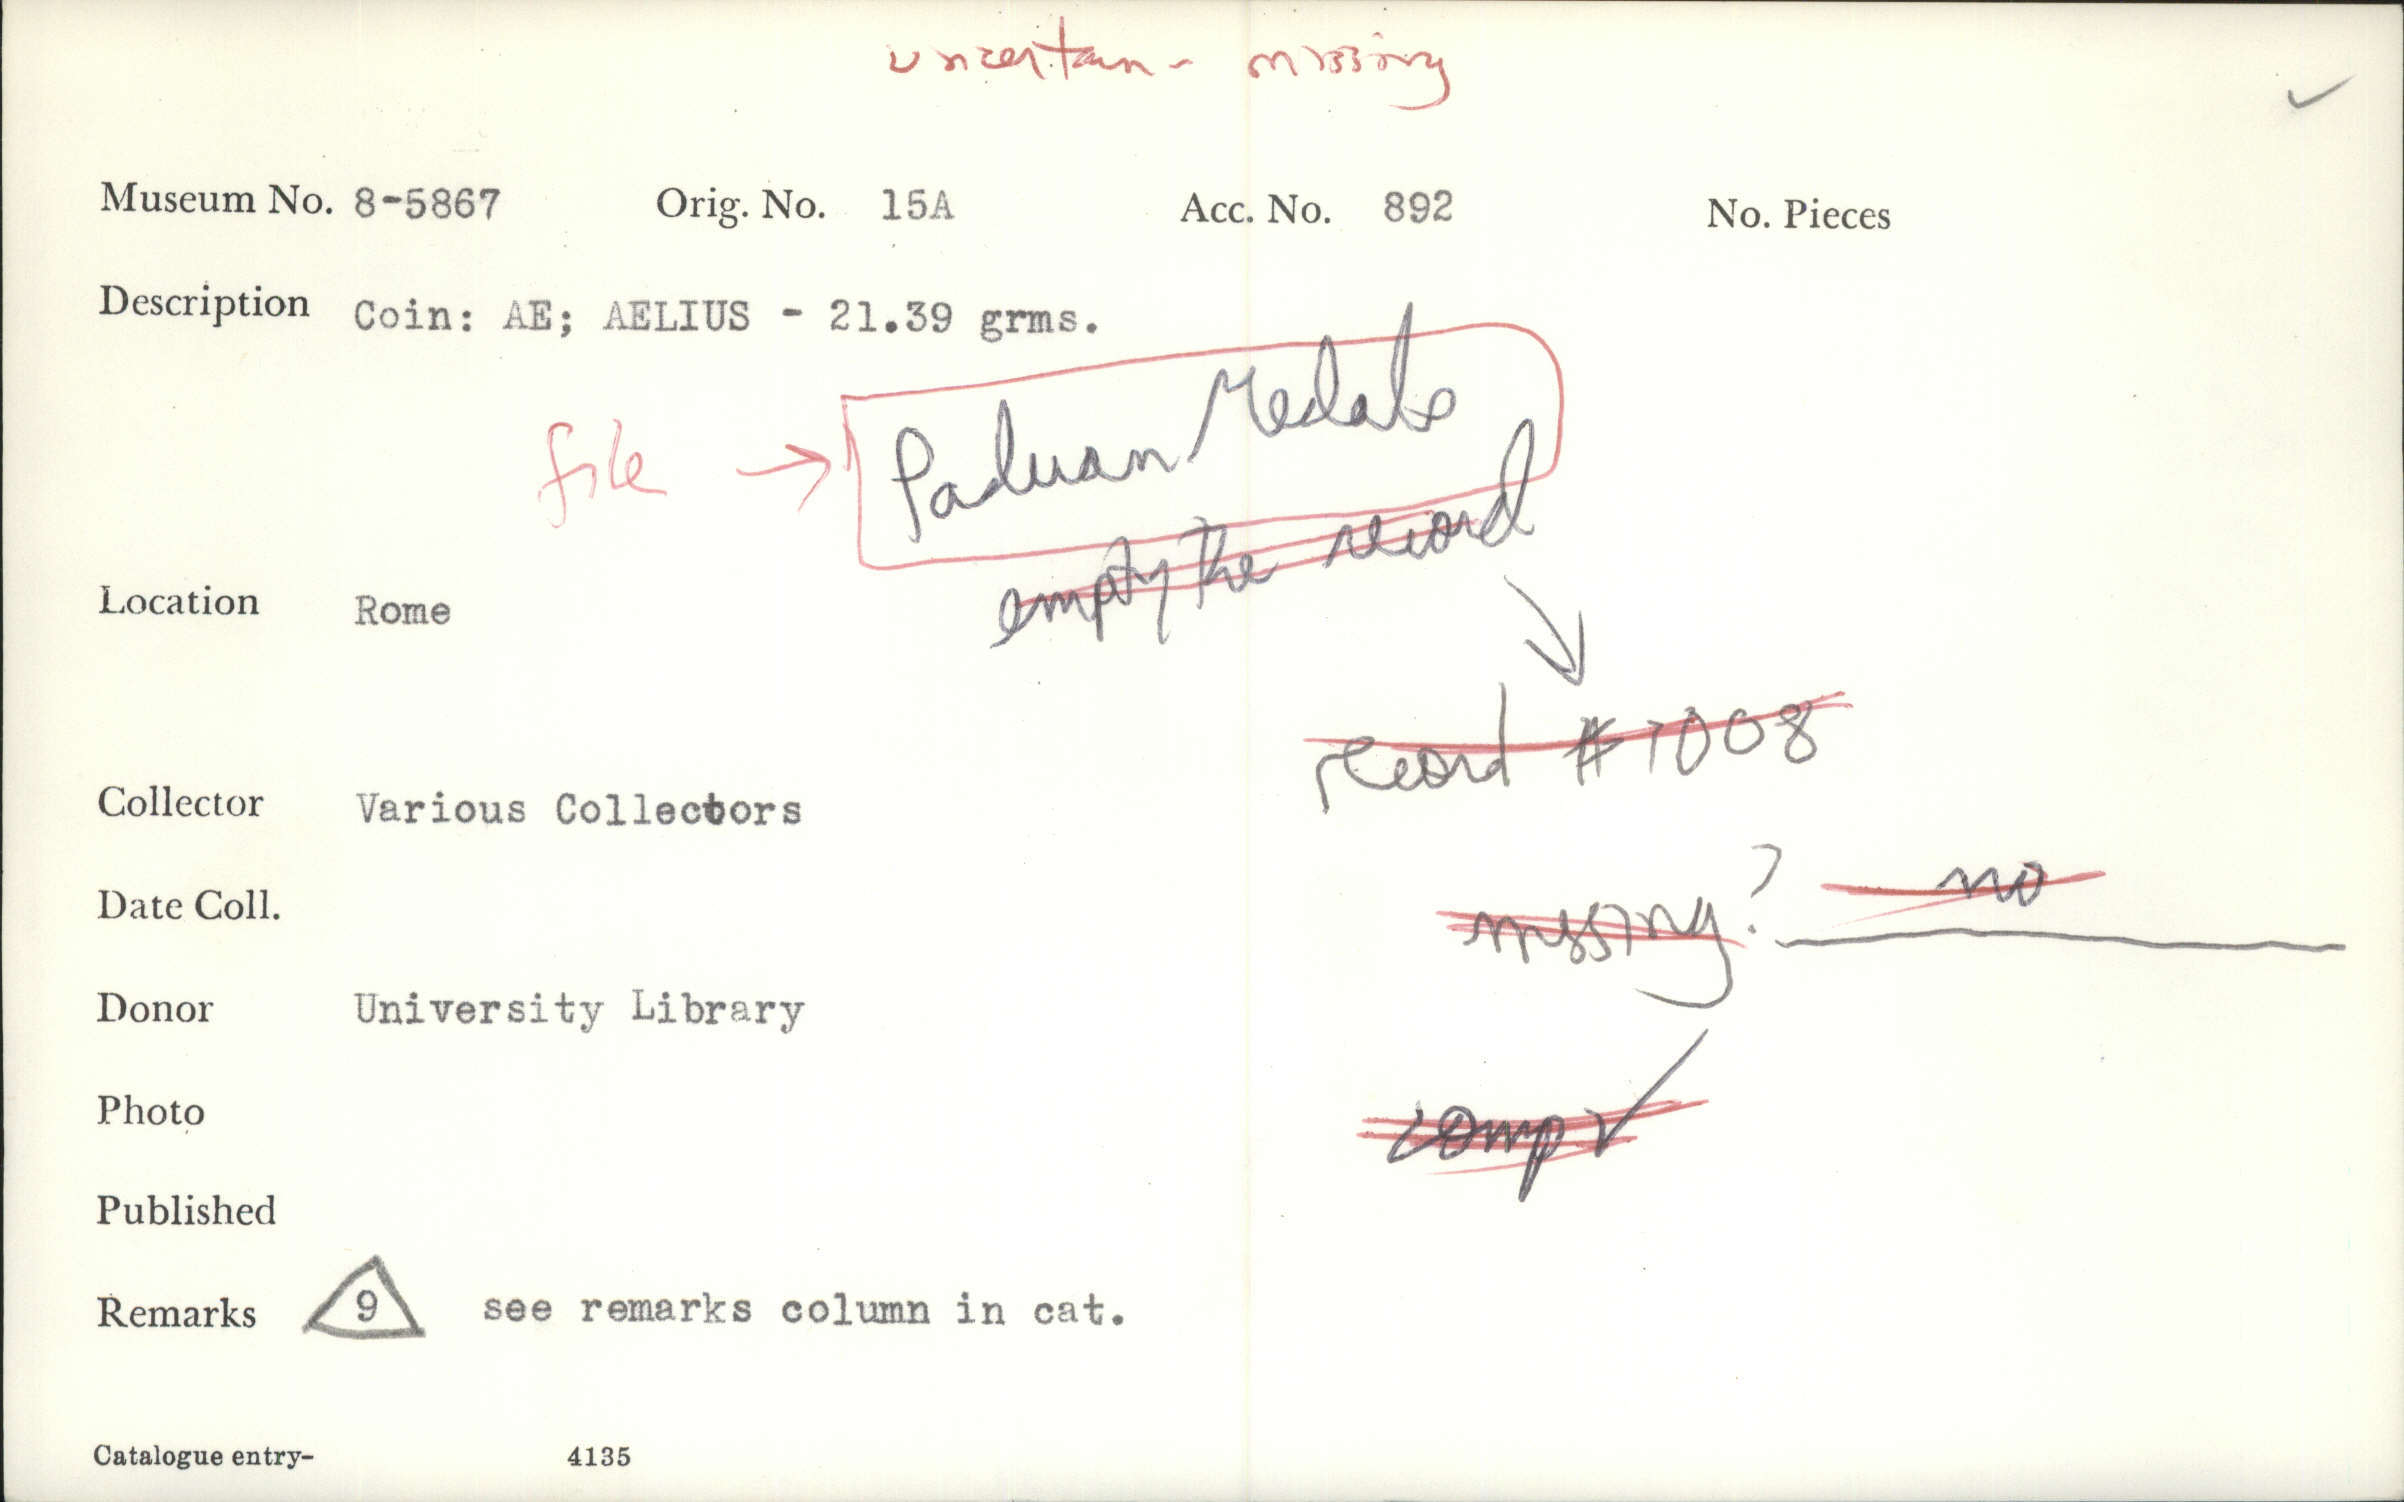 uncertain - missing
Museum No. 8-5867 Orig. No. 15A Acc. No. 892 No. Pieces
Description Coin: AE; AELIUS - 21.39 grms.
file → Paduan Medals
empty the record
Location Rome
record #1008
Collector Various Collectors
missing? no
Date Coll.
Donor University Library
Photo
comp ✓
Published
Remarks 9 see remarks column in cat.
Catalogue entry- 4135